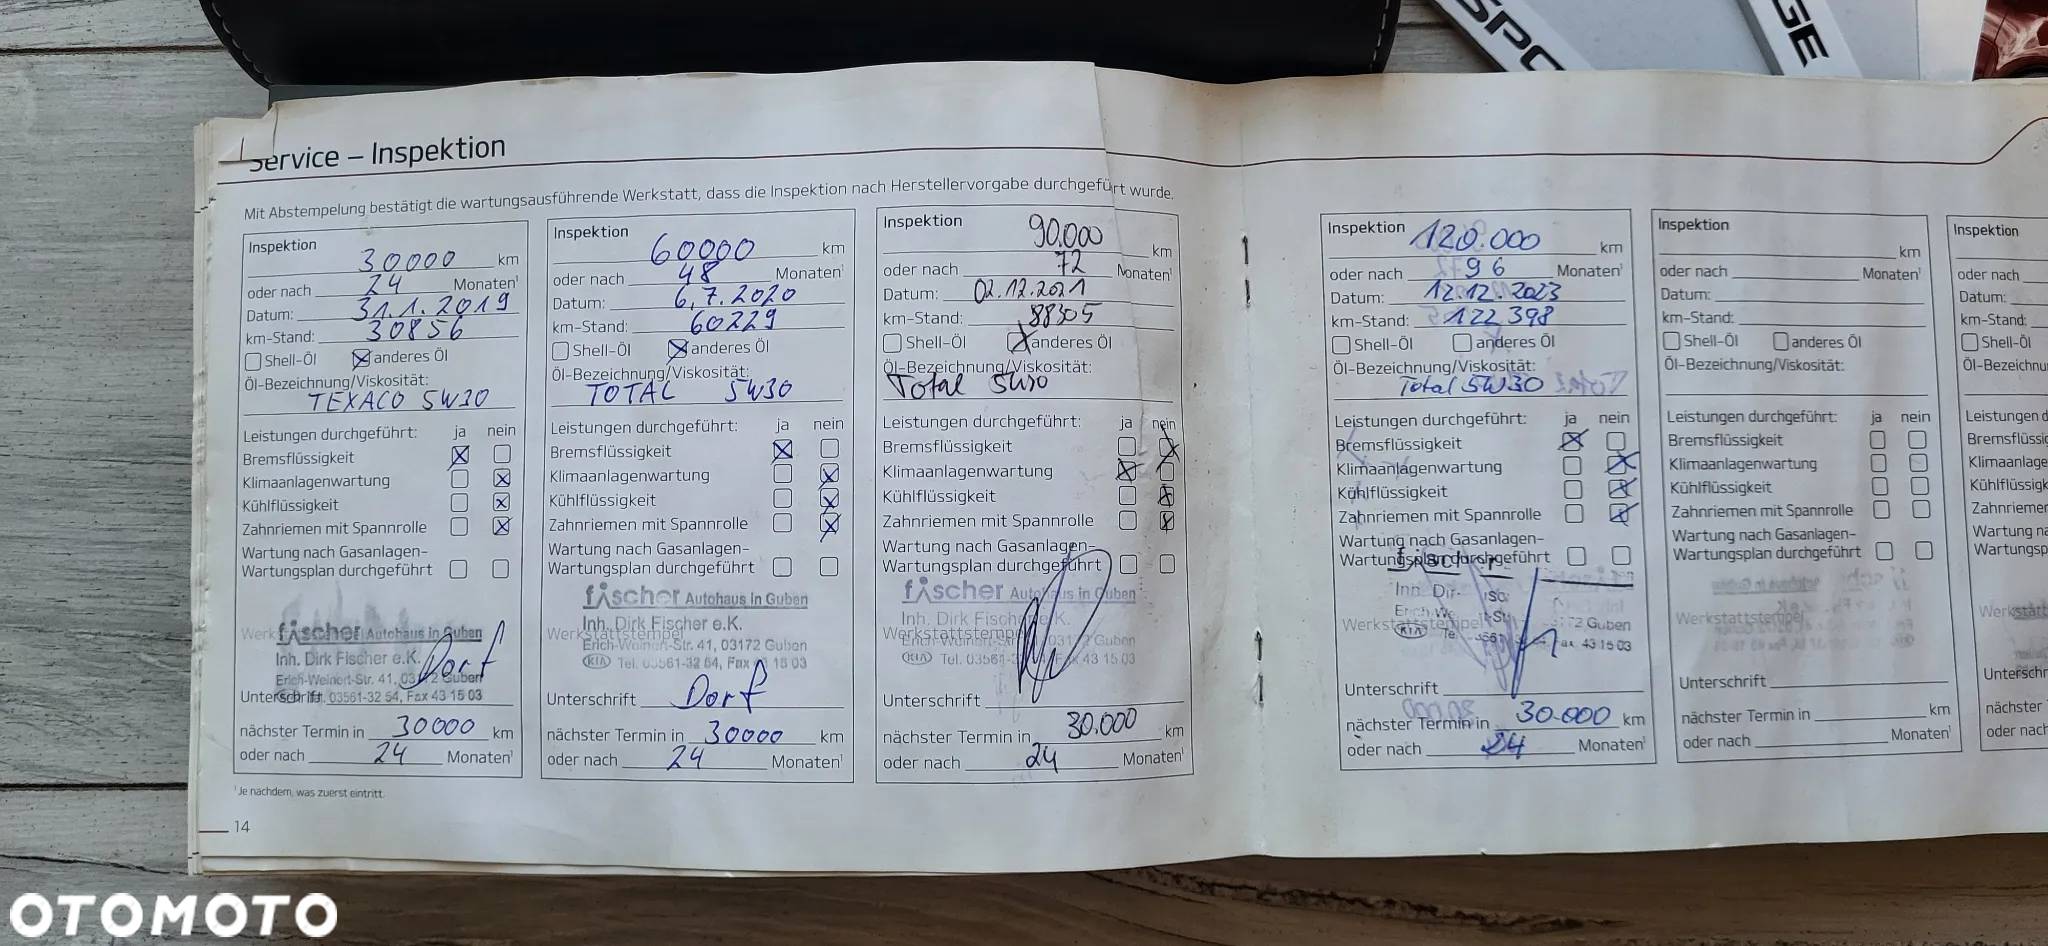 SPO
GE
Service – Inspektion
Mit Abstempelung bestätigt die wartungsausführende Werkstatt, dass die Inspektion nach Herstellervorgabe durchgeführt wurde.
Inspektion
30000 km
oder nach 24 Monaten¹
Datum: 31.1.2019
km-Stand: 30856
Shell-Öl anderes Öl
Öl-Bezeichnung/Viskosität:
TEXACO 5W30
Leistungen durchgeführt: ja nein
Bremsflüssigkeit
Klimaanlagenwartung
Kühlflüssigkeit
Zahnriemen mit Spannrolle
Wartung nach Gasanlagen-
Wartungsplan durchgeführt
fischer Autohaus in Guben
Inh. Dirk Fischer e.K.
Erich-Weinert-Str. 41, 03172 Guben
Unterschrift 03561-32 54, Fax 43 15 03
Dorf
nächster Termin in 30000 km
oder nach 24 Monaten¹
¹Je nachdem, was zuerst eintritt.
14
Inspektion
60000 km
oder nach 48 Monaten¹
Datum: 6.7.2020
km-Stand: 60229
Shell-Öl anderes Öl
Öl-Bezeichnung/Viskosität:
TOTAL 5W30
Leistungen durchgeführt: ja nein
Bremsflüssigkeit
Klimaanlagenwartung
Kühlflüssigkeit
Zahnriemen mit Spannrolle
Wartung nach Gasanlagen-
Wartungsplan durchgeführt
fischer Autohaus in Guben
Inh. Dirk Fischer e.K.
Werkstattstempel
Erich-Weinert-Str. 41, 03172 Guben
KIA Tel. 03561-32 54, Fax 43 15 03
Unterschrift Dorf
nächster Termin in 30000 km
oder nach 24 Monaten¹
Inspektion
90.000 km
oder nach 72 Monaten¹
Datum: 02.12.2021
km-Stand: 88305
Shell-Öl anderes Öl
Öl-Bezeichnung/Viskosität:
Total 5W30
Leistungen durchgeführt: ja nein
Bremsflüssigkeit
Klimaanlagenwartung
Kühlflüssigkeit
Zahnriemen mit Spannrolle
Wartung nach Gasanlagen-
Wartungsplan durchgeführt
fischer Autohaus in Guben
Inh. Dirk Fischer e.K.
Werkstattstempel
Erich-Weinert-Str. 03172 Guben
KIA Tel. 03561- Fax 43 15 03
Unterschrift
nächster Termin in 30.000 km
oder nach 24 Monaten¹
Inspektion
120.000 km
oder nach 96 Monaten¹
Datum: 12.12.2023
km-Stand: 122 398
Shell-Öl anderes Öl
Öl-Bezeichnung/Viskosität:
Total 5W30
Leistungen durchgeführt: ja nein
Bremsflüssigkeit
Klimaanlagenwartung
Kühlflüssigkeit
Zahnriemen mit Spannrolle
Wartung nach Gasanlagen-
Wartungsplan durchgeführt
Inh.
Werkstattstempel Guben
KIA 43 15 03
Unterschrift
nächster Termin in 30.000 km
oder nach 24 Monaten¹
Inspektion
km
oder nach Monaten¹
Datum:
km-Stand:
Shell-Öl anderes Öl
Öl-Bezeichnung/Viskosität:
Leistungen durchgeführt: ja nein
Bremsflüssigkeit
Klimaanlagenwartung
Kühlflüssigkeit
Zahnriemen mit Spannrolle
Wartung nach Gasanlagen-
Wartungsplan durchgeführt
Werkstattstempel
Unterschrift
nächster Termin in km
oder nach Monaten¹
Inspektion
oder nach
Datum:
km-Stand:
Shell-Öl
Öl-Bezeichnung/Vis
Leistungen d
Bremsflüssig
Klimaanlage
Kühlflüssigke
Zahnriemen
Wartung nach
Wartungsp
Werkstatt
Unterschr
nächster
oder nac
OTOMOTO